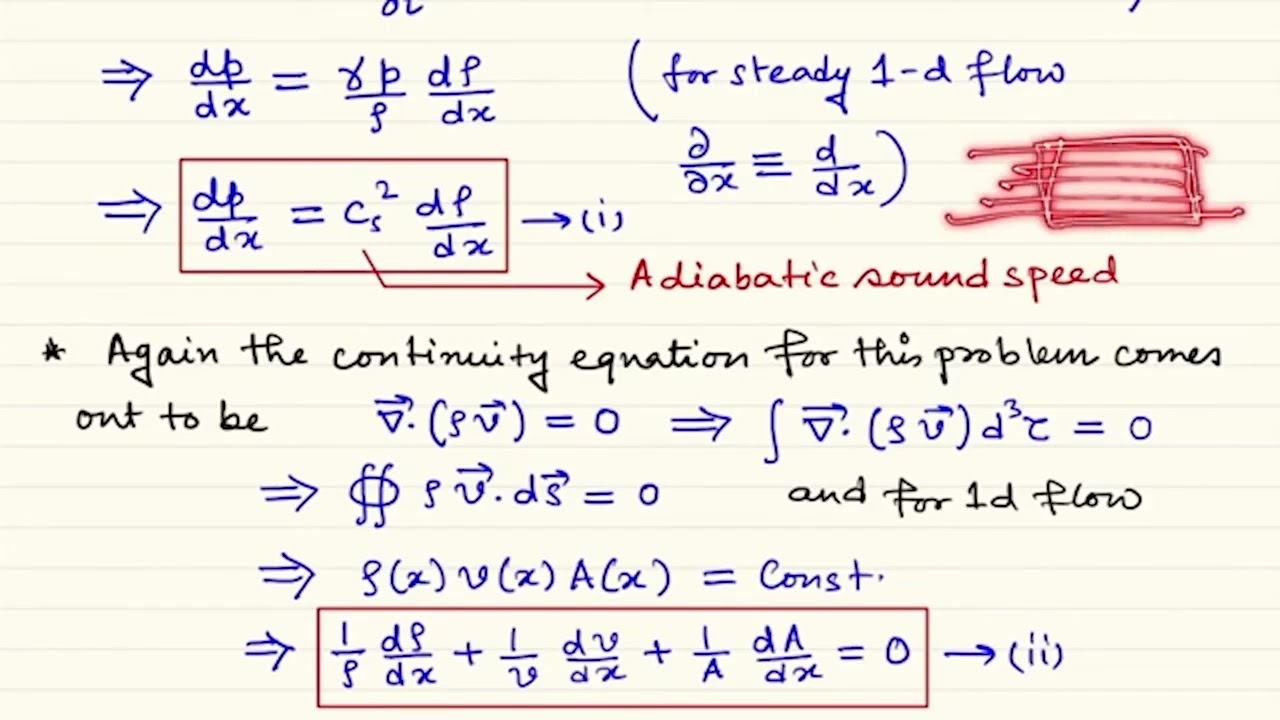 ⇒ dp/dx = γp/ρ dρ/dx (for steady 1-d flow
∂/∂x ≡ d/dx)
⇒ dp/dx = c_s² dρ/dx → (i)
Adiabatic sound speed
* Again the continuity equation for this problem comes
out to be ∇⃗·(ρv⃗) = 0 ⇒ ∫ ∇⃗·(ρv⃗) d³τ = 0
⇒ ∯ ρv⃗·ds⃗ = 0 and for 1d flow
⇒ ρ(x) v(x) A(x) = Const.
⇒ 1/ρ dρ/dx + 1/v dv/dx + 1/A dA/dx = 0 → (ii)